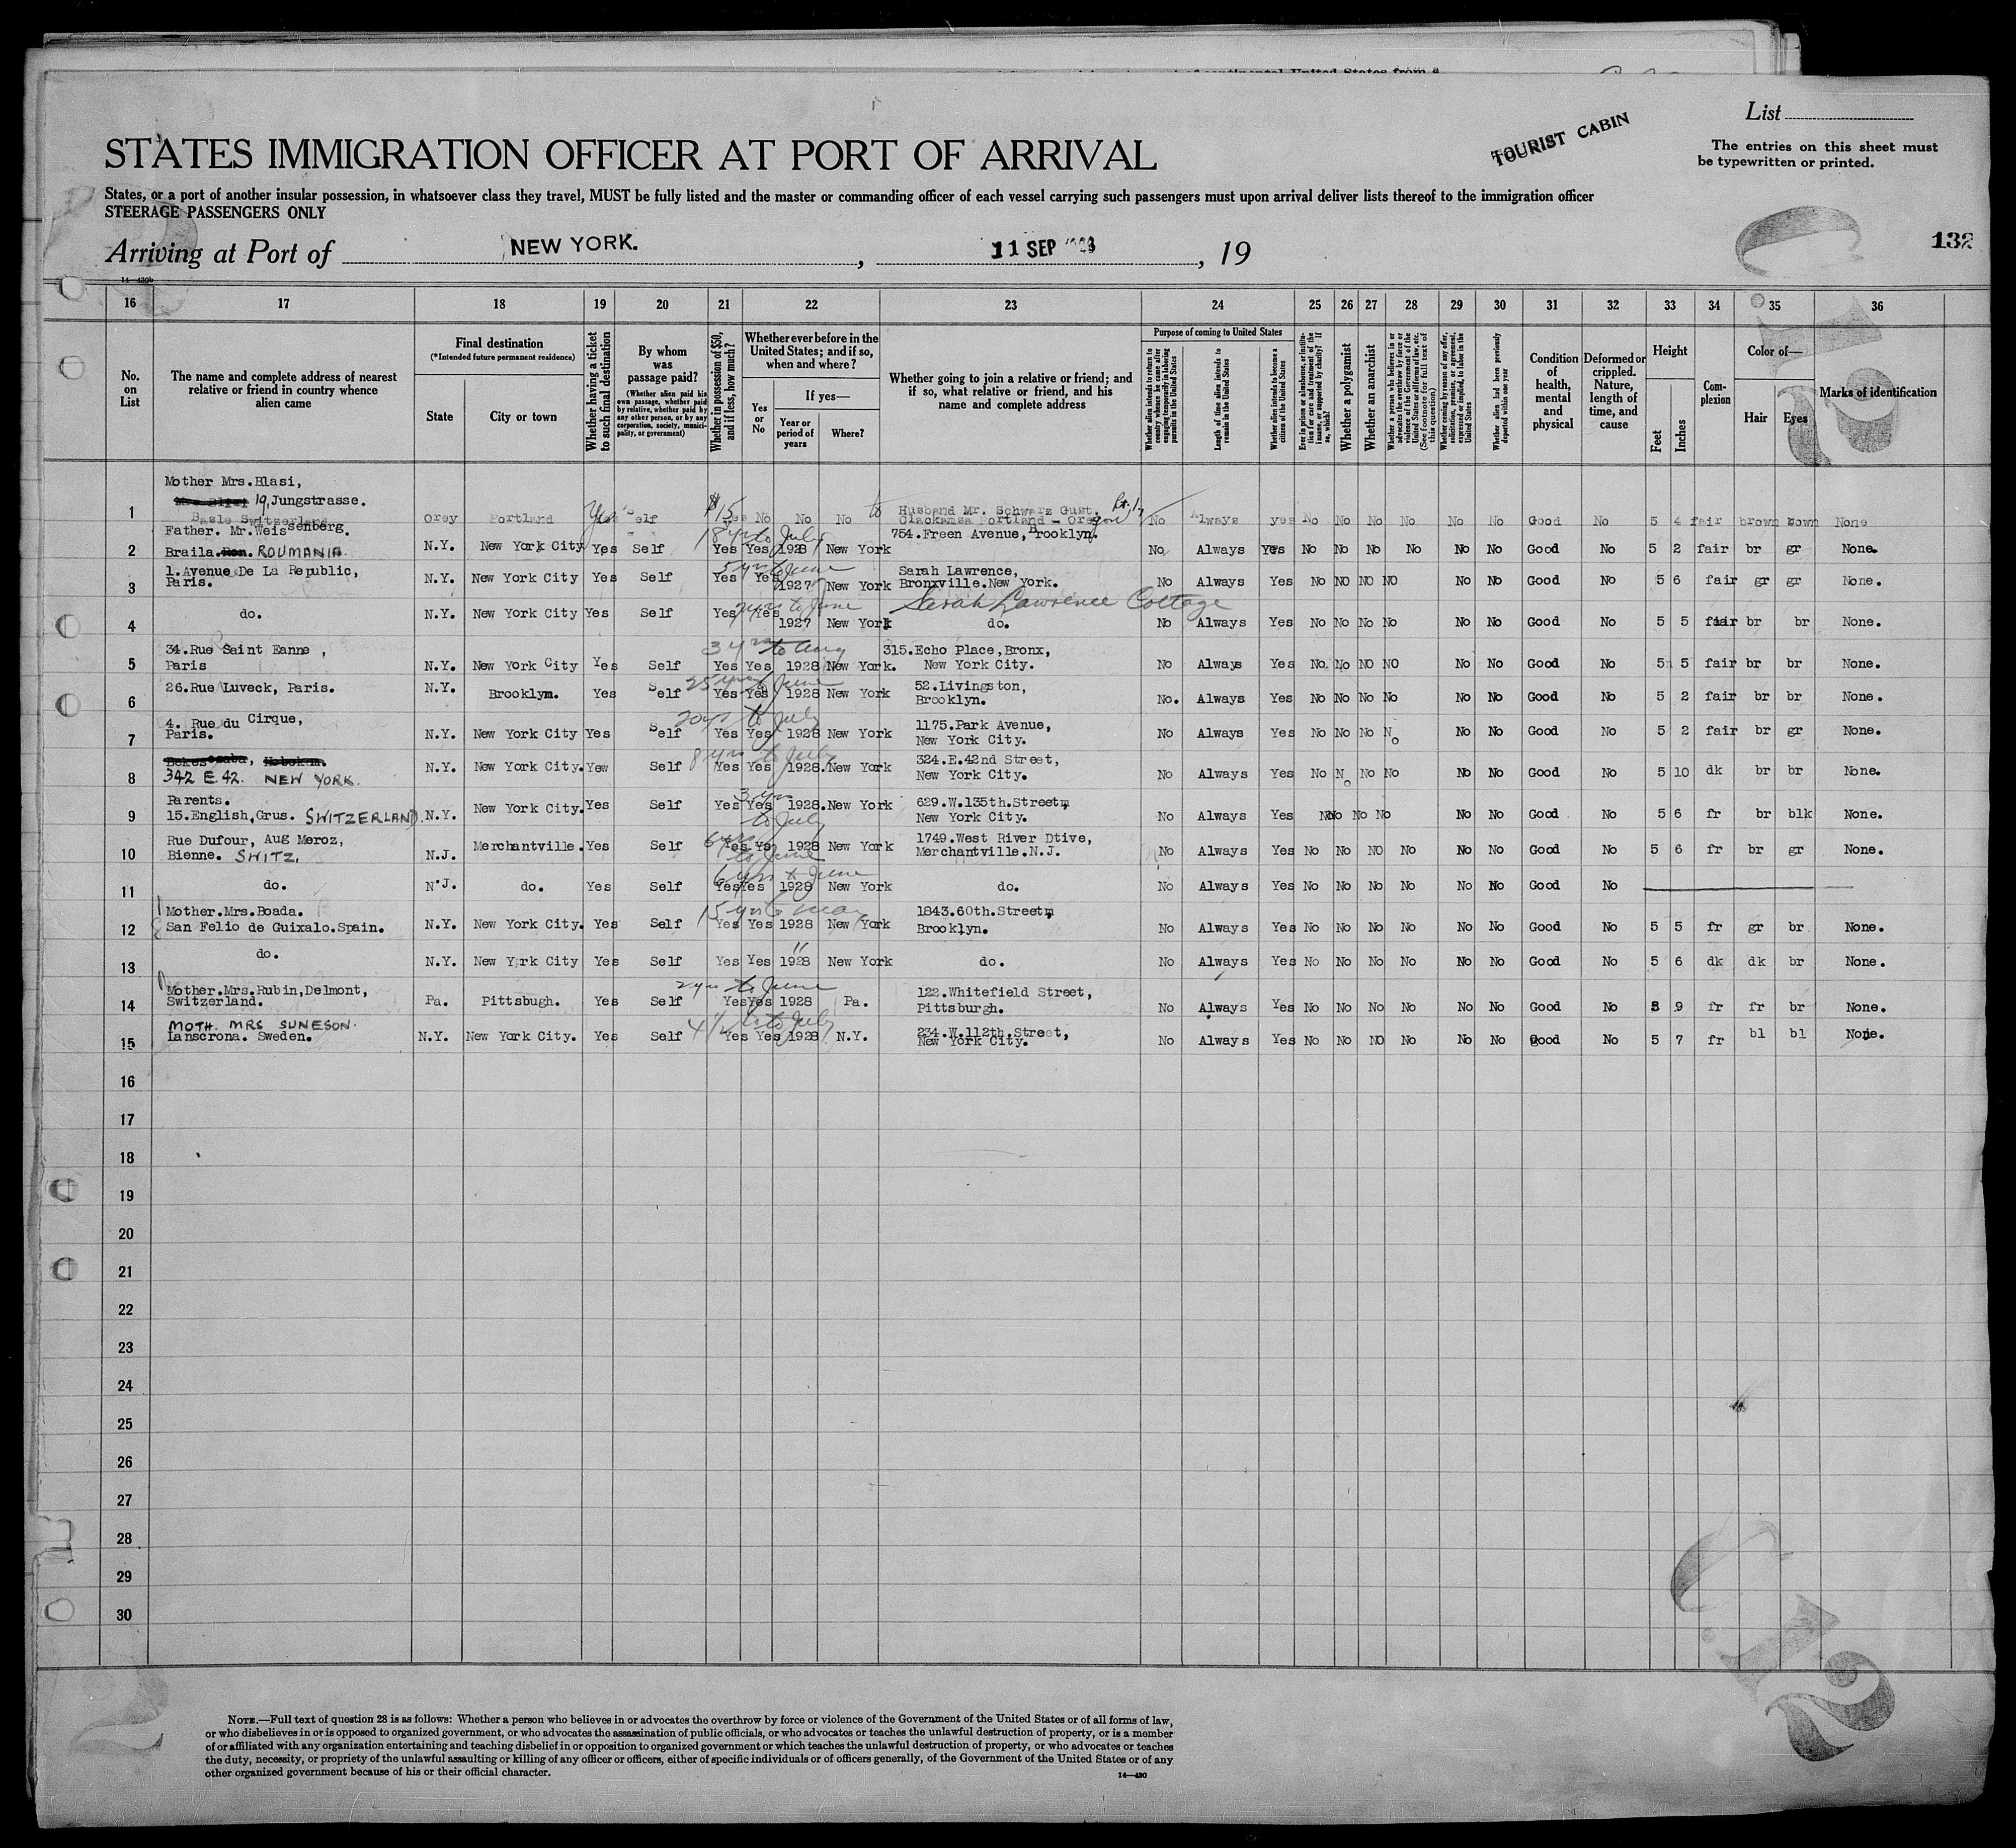 List
TOURIST CABIN
STATES IMMIGRATION OFFICER AT PORT OF ARRIVAL
The entries on this sheet must
be typewritten or printed.
States, or a port of another insular possession, in whatsoever class they travel, MUST be fully listed and the master or commanding officer of each vessel carrying such passengers must upon arrival deliver lists thereof to the immigration officer
STEERAGE PASSENGERS ONLY
Arriving at Port of NEW YORK. , 11 SEP , 19
132
16 17 18 19 20 21 22 23 24 25 26 27 28 29 30 31 32 33 34 35 36
No. on List
The name and complete address of nearest relative or friend in country whence alien came
Final destination
(*Intended future permanent residence)
State
City or town
Whether having a ticket to such final destination
By whom was passage paid?
(Whether alien paid his own passage, whether paid by relative, whether paid by any other person, or by any corporation, society, municipality, or government)
Whether in possession of $50, and if less, how much?
Whether ever before in the United States; and if so, when and where?
Yes or No
If yes—
Year or period of years
Where?
Whether going to join a relative or friend; and if so, what relative or friend, and his name and complete address
Purpose of coming to United States
Whether alien intends to return to country whence he came after engaging temporarily in laboring pursuits in the United States
Length of time alien intends to remain in the United States
Whether alien intends to become a citizen of the United States
Ever in prison or almshouse, or institution for care and treatment of the insane, or supported by charity? If so, which?
Whether a polygamist
Whether an anarchist
(See footnote for full text of this question)
Whether alien had been previously deported within one year
Condition of health, mental and physical
Deformed or crippled. Nature, length of time, and cause
Height
Feet
Inches
Complexion
Color of—
Hair
Eyes
Marks of identification
1 Mother Mrs.Blasi,
19,Jungstrasse.
Basle Switzerland
orey Portland Yes Self $15 Yes No No No to Husband Mr. Schwarz Gust.
Clackamsa Portland - Oregon No Always yes No No No No No No Good No 5 4 fair brown brown None
2 Father. Mr.Weissenberg.
Braila. ROUMANIA.
N.Y. New York City Yes Self Yes Yes 18 yrs to July 1928 New York 754.Freen Avenue,Brooklyn. No Always Yes No No No No No No Good No 5 2 fair br gr None.
3 1.Avenue De La Republic,
Paris.
N.Y. New York City Yes Self Yes Yes 5 yrs to June 1927 New York Sarah Lawrence,
Bronxville.New York. No Always Yes No NO NO NO No No Good No 5 6 fair gr gr None.
4 do. N.Y. New York City Yes Self Yes Yes to June 1927 New York Sarah Lawrence Cottage
do. No Always Yes No No No No No No Good No 5 5 fair br br None.
5 34.Rue Saint Eanne ,
Paris
N.Y. New York City Yes Self Yes Yes to Aug 1928 New York. 315.Echo Place,Bronx,
New York City. No Always Yes No. No NO NO No No Good No 5 5 fair br br None.
6 26.Rue Luveck, Paris. N.Y. Brooklym. Yes Self Yes Yes 25 yrs June 1928 New York 52.Livingston,
Brooklyn. No. Always Yes No No No No No No Good No 5 2 fair br br None.
7 4. Rue du Cirque,
Paris.
N.Y. New York City Yes Self Yes Yes to July 1928 New York 1175.Park Avenue,
New York City. No Always Yes No No No No No No Good No 5 2 fair br gr None.
8 342 E.42. NEW YORK.
N.Y. New York City. Yew Self Yes Yes 8 yrs to July 1928. New York 324.E.42nd Street,
New York City. No Always Yes No No No No No No Good No 5 10 dk br br None.
9 Parents.
15.English,Grus. SWITZERLAND.
N.Y. New York City. Yes Self Yes Yes 3 yrs to July 1928. New York 629.W.135th.Street,
New York City. No Always Yes No No No No No No Good No 5 6 fr br blk None.
10 Rue Dufour, Aug Meroz,
Bienne. SWITZ.
N.J. Merchantville. Yes Self Yes Yes 6 yrs to June 1928 New York 1749.West River Dtive,
Merchantville.N.J. No Always Yes No No NO No No No Good No 5 6 fr br gr None.
11 do. N.J. do. Yes Self Yes Yes 6 yrs to June 1928 New York do. No Always Yes No No No No No No Good No
12 Mother.Mrs.Boada.
San Felio de Guixalo.Spain.
N.Y. New York City. Yes Self Yes Yes 15 yrs to May 1928 New York 1843.60th.Street,
Brooklyn. No Always Yes No No No No No No Good No 5 5 fr gr br None.
13 do. N.Y. New Yrrk City Yes Self Yes Yes " 1928 New York do. No Always Yes No No No No No No Good No 5 6 dk dk br None.
14 Mother.Mrs.Rubin,Delmont,
Switzerland.
Pa. Pittsbugh. Yes Self Yes Yes to June 1928 Pa. 122.Whitefield Street,
Pittsburgh. No Always Yes No No No No No No Good No 5 9 fr fr br None.
15 MOTH. MRS SUNESON.
Lanscrona. Sweden.
N.Y. New York City. Yes Self Yes Yes to July 1928 N.Y. 234.W.112th.Street,
New York City. No Always Yes No No NO No No No Good No 5 7 fr bl bl None.
16
17
18
19
20
21
22
23
24
25
26
27
28
29
30
NOTE.—Full text of question 28 is as follows: Whether a person who believes in or advocates the overthrow by force or violence of the Government of the United States or of all forms of law,
or who disbelieves in or is opposed to organized government, or who advocates the assassination of public officials, or who advocates or teaches the unlawful destruction of property, or is a member
of or affiliated with any organization entertaining and teaching disbelief in or opposition to organized government or which teaches the unlawful destruction of property, or who advocates or teaches
the duty, necessity, or propriety of the unlawful assaulting or killing of any officer or officers, either of specific individuals or of officers generally, of the Government of the United States or of any
other organized government because of his or their official character.
14—430